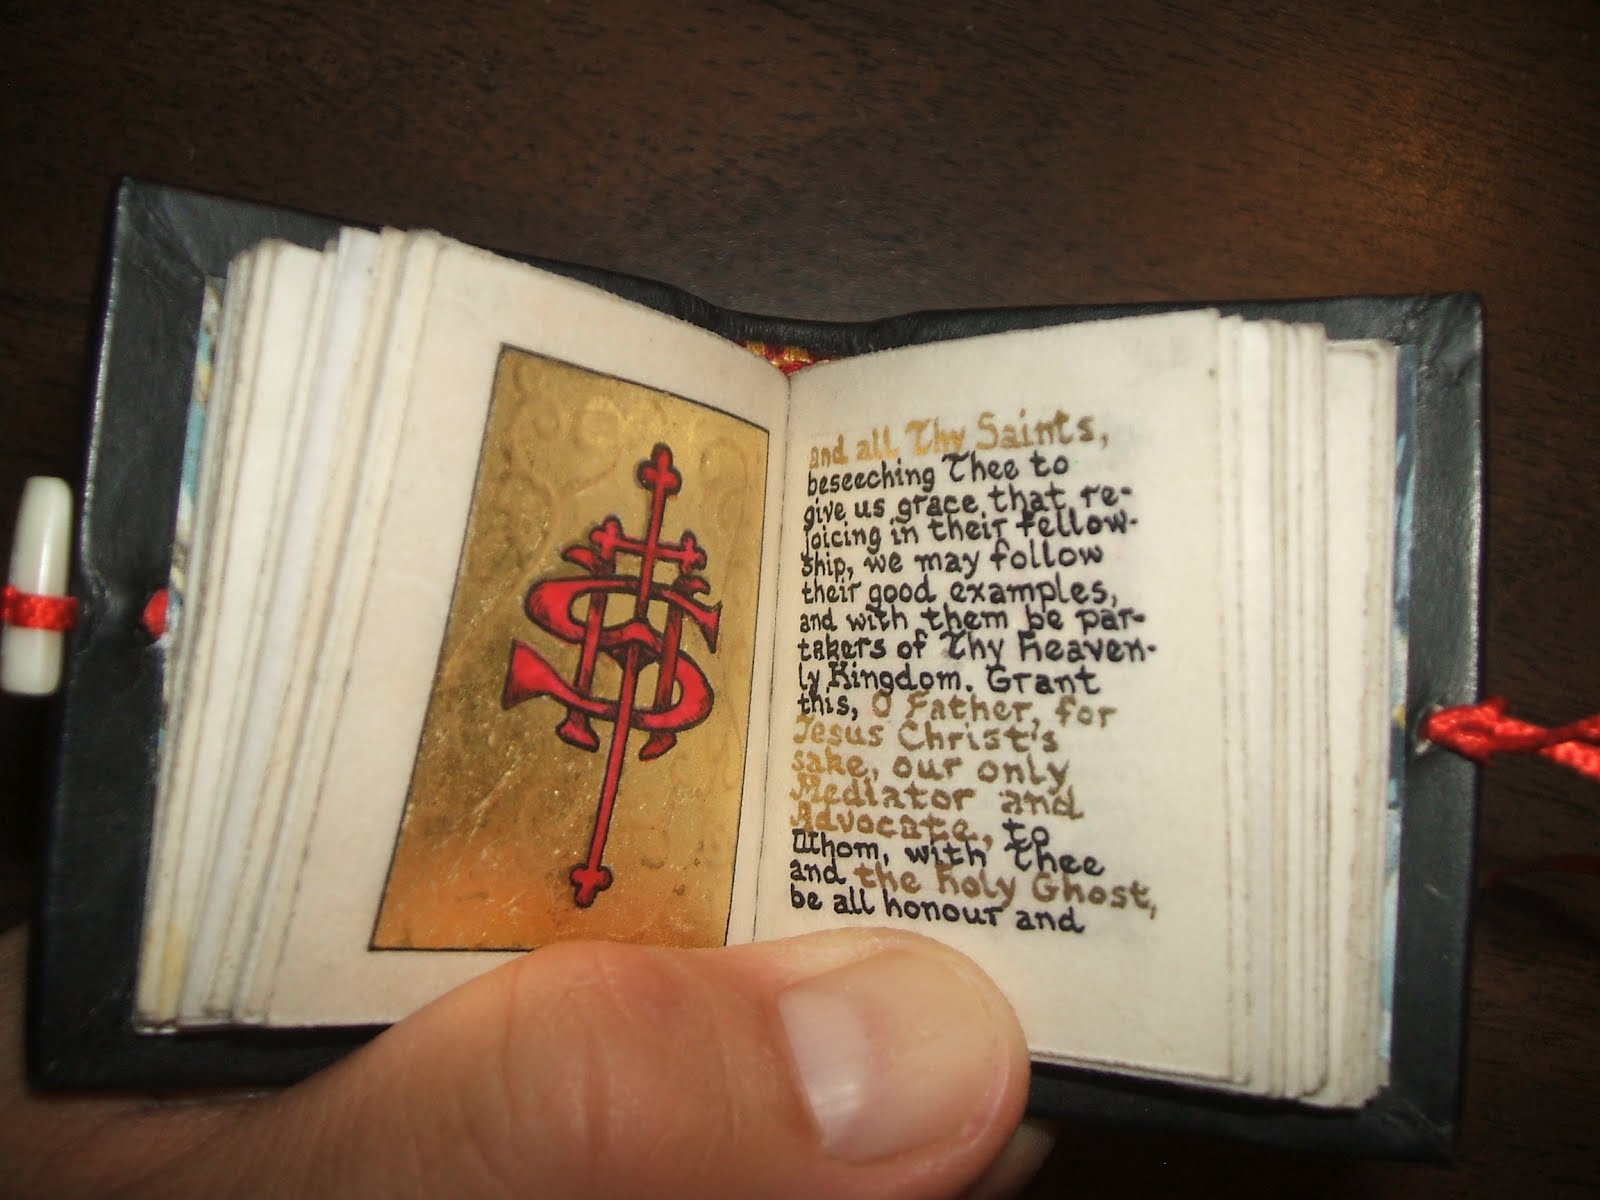 IHS
and all Thy Saints,
beseeching Thee to
give us grace that re-
joicing in their fellow-
ship, we may follow
their good examples,
and with them be par-
takers of Thy Heaven-
ly Kingdom. Grant
this, O Father, for
Jesus Christ's
sake, our only
Mediator and
Advocate, to
Whom, with Thee
and the Holy Ghost,
be all honour and